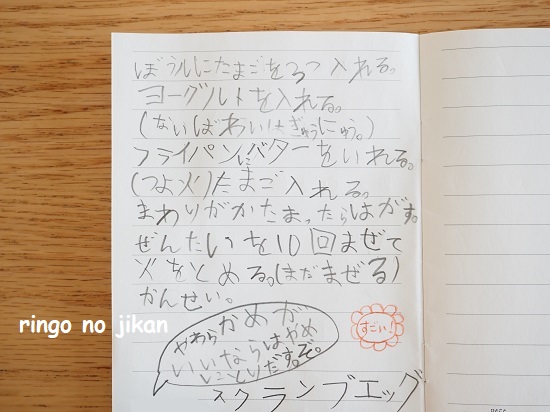 ぼうルにたまごを3つ入れる。
ヨーグルトを入れる。
(ないばあいはぎゅうにゅう。)
フライパンにバターをいれる。
(つよ火)たまご入れる。
まわりがかたまったらはがす。
ぜんたいを10回まぜて
火をとめる。(まだまぜる)
かんせい。
やわらかめが
いいならはやめ
にとりだすぞ。
すごい!
スクランブエッグ
ringo no jikan